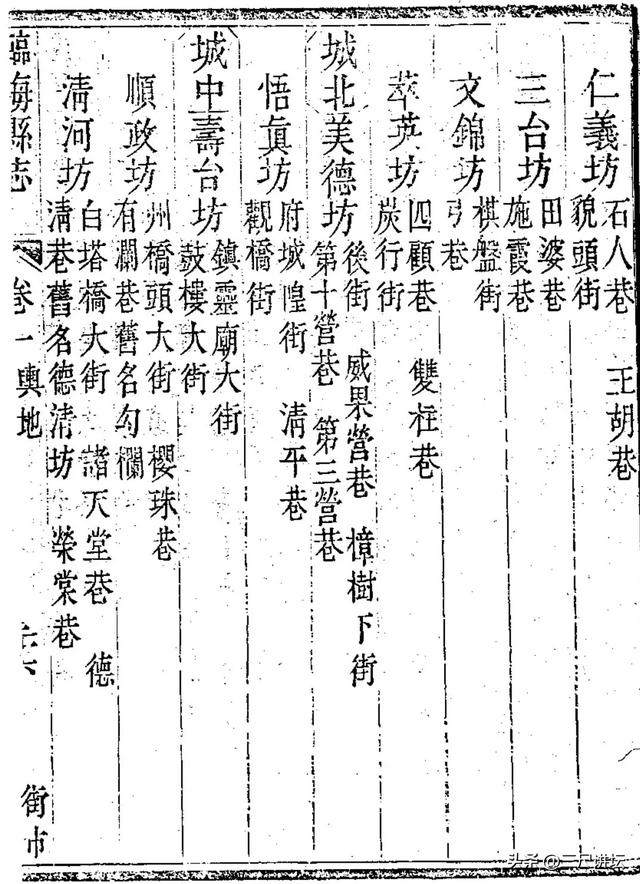 仁義坊
石人巷 王胡巷
貌頭街
三台坊
田婆巷
施霞巷
文錦坊
棋盤街
弓巷
萃英坊
四顧巷 雙柱巷
炭行街
城北美德坊
後街 威果營巷 樟樹下街
第十營巷 第三營巷
悟眞坊
府城隍街 清平巷
觀橋街
城中壽台坊
鎮靈廟大街
鼓樓大街
順政坊
州橋頭大街 櫻珠巷
有瀾巷舊名勾欄
清河坊
白塔橋大街 諸天堂巷 德
清巷舊名德清坊 榮棠巷
臨海縣志 卷一輿地 街市
头条 @三尺讲坛